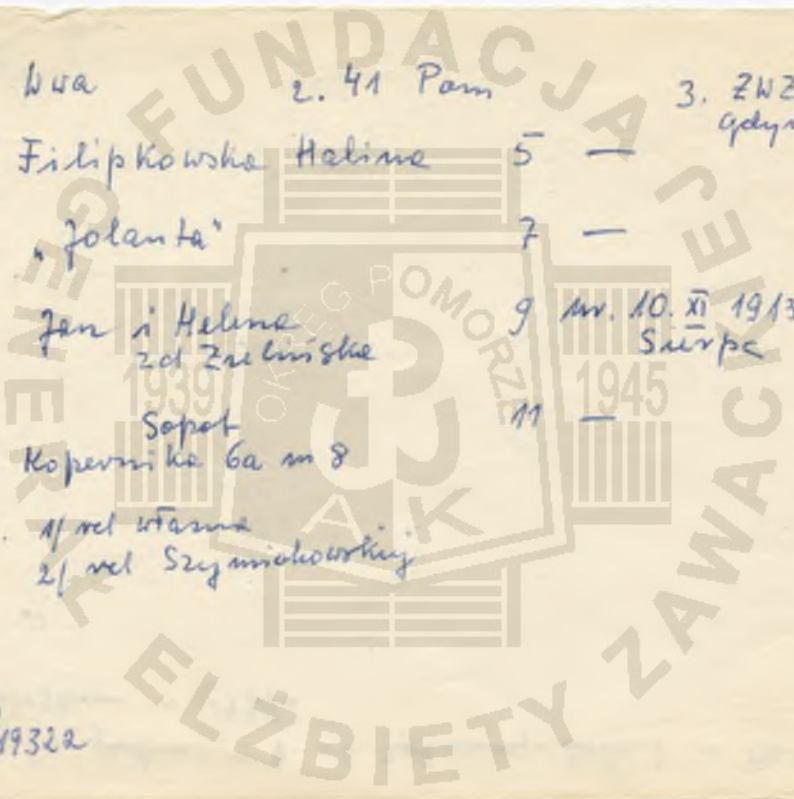 Wwa 2. 41 Pom 3. ZWZ
Gdyn
Filipkowska Halina 5 —
"Jolanta" 7 —
Jan i Helena 9 ur. 10. XI 1913
zd Zielińska Sierpc
Sopot 11 —
Kopernika 6a m 8
1/ rel własna
2/ rel Szymichowskiej
19322
FUNDACJA
GENERAŁ ELŻBIETY ZAWACKIEJ
OKRĘG POMORZE
1939 1945
AK